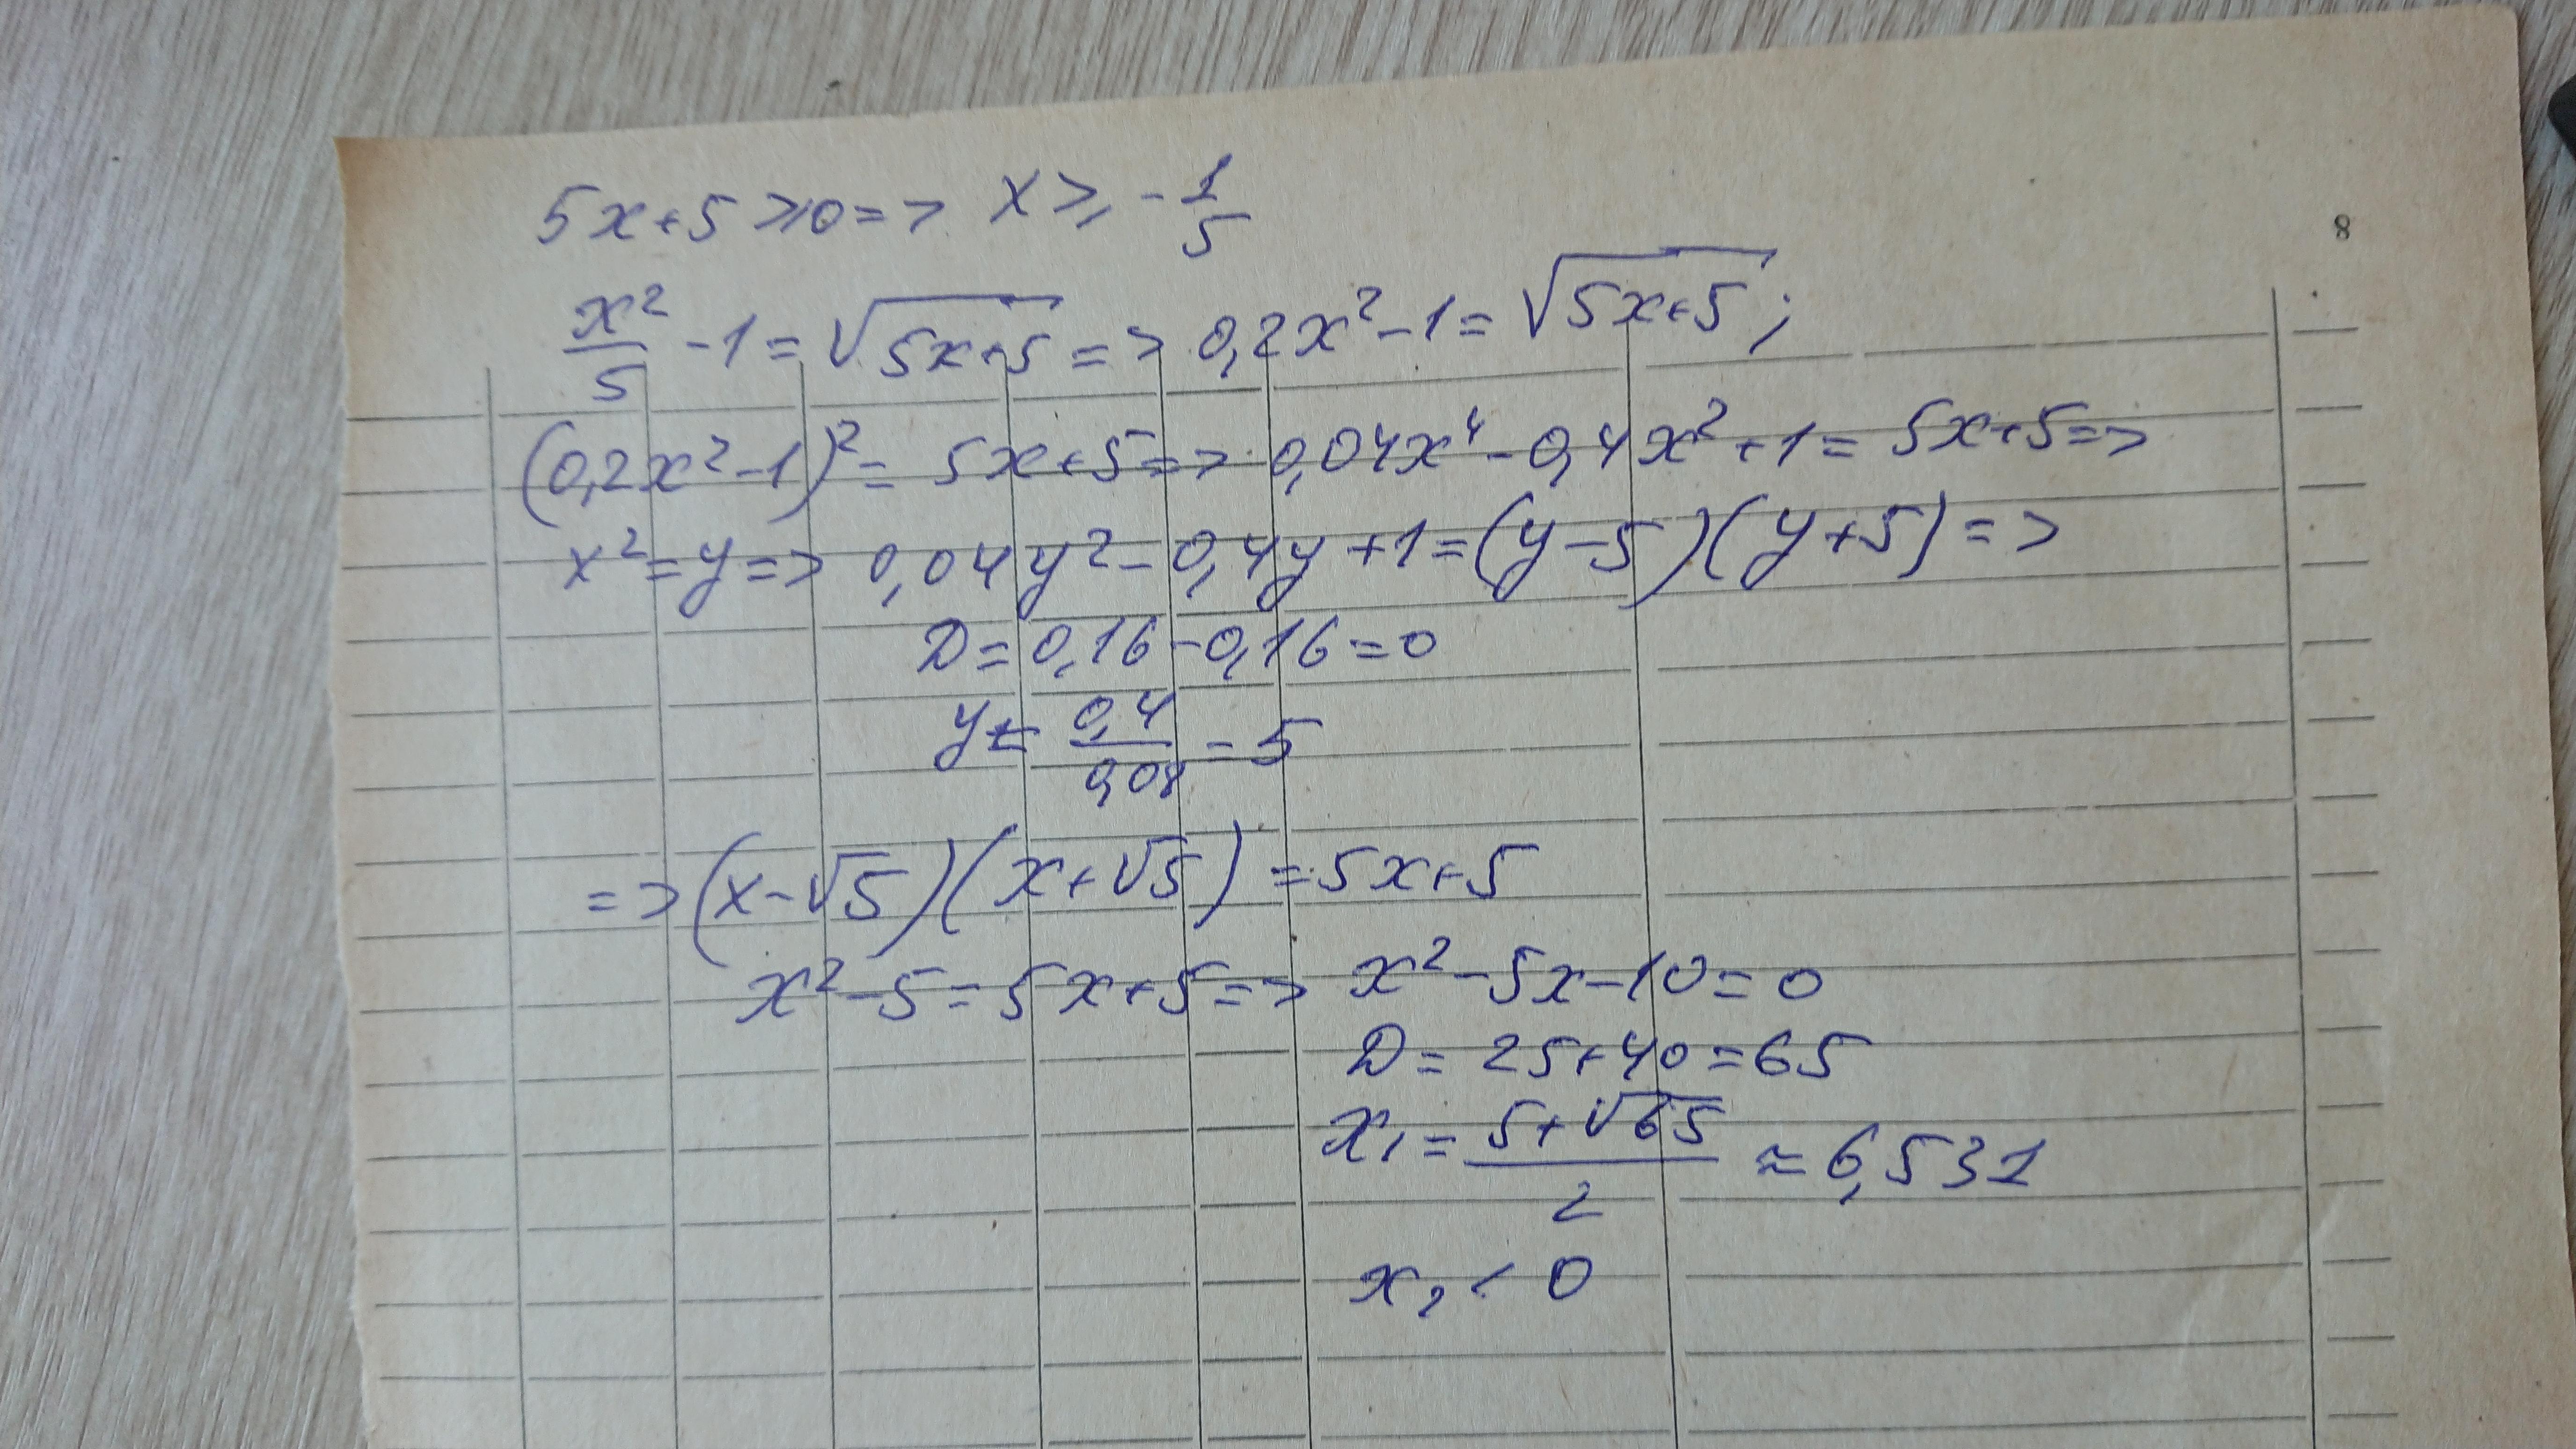 8
5x+5≥0=> x≥-1/5
x²/5-1=√(5x+5)=> 0,2x²-1=√(5x+5);
(0,2x²-1)²=5x+5=> 0,04x⁴-0,4x²+1=5x+5=>
x²=y=> 0,04y²-0,4y+1=(y-5)(y+5)=>
D=0,16-0,16=0
y=0,4/0,08=5
=>(x-√5)(x+√5)=5x+5
x²-5=5x+5=> x²-5x-10=0
D=25+40=65
x₁=(5+√65)/2≈6,531
x₂<0